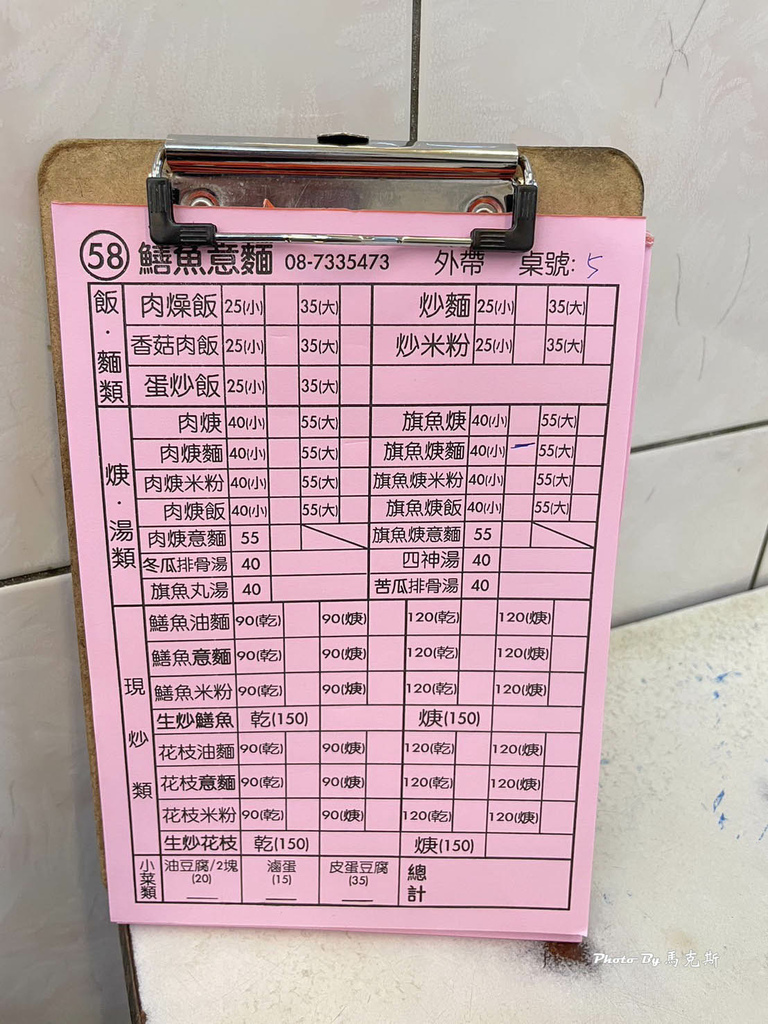 58 鱔魚意麵 08-7335473 外帶 桌號: 5
飯・麵類
肉燥飯 25(小) 35(大) 炒麵 25(小) 35(大)
香菇肉飯 25(小) 35(大) 炒米粉 25(小) 35(大)
蛋炒飯 25(小) 35(大)
焿・湯類
肉焿 40(小) 55(大) 旗魚焿 40(小) 55(大)
肉焿麵 40(小) 55(大) 旗魚焿麵 40(小) 一 55(大)
肉焿米粉 40(小) 55(大) 旗魚焿米粉 40(小) 55(大)
肉焿飯 40(小) 55(大) 旗魚焿飯 40(小) 55(大)
肉焿意麵 55 旗魚焿意麵 55
冬瓜排骨湯 40 四神湯 40
旗魚丸湯 40 苦瓜排骨湯 40
現炒類
鱔魚油麵 90(乾) 90(焿) 120(乾) 120(焿)
鱔魚意麵 90(乾) 90(焿) 120(乾) 120(焿)
鱔魚米粉 90(乾) 90(焿) 120(乾) 120(焿)
生炒鱔魚 乾(150) 焿(150)
花枝油麵 90(乾) 90(焿) 120(乾) 120(焿)
花枝意麵 90(乾) 90(焿) 120(乾) 120(焿)
花枝米粉 90(乾) 90(焿) 120(乾) 120(焿)
生炒花枝 乾(150) 焿(150)
小菜類
油豆腐/2塊 滷蛋 皮蛋豆腐 總計
(20) (15) (35)
Photo By 馬克斯